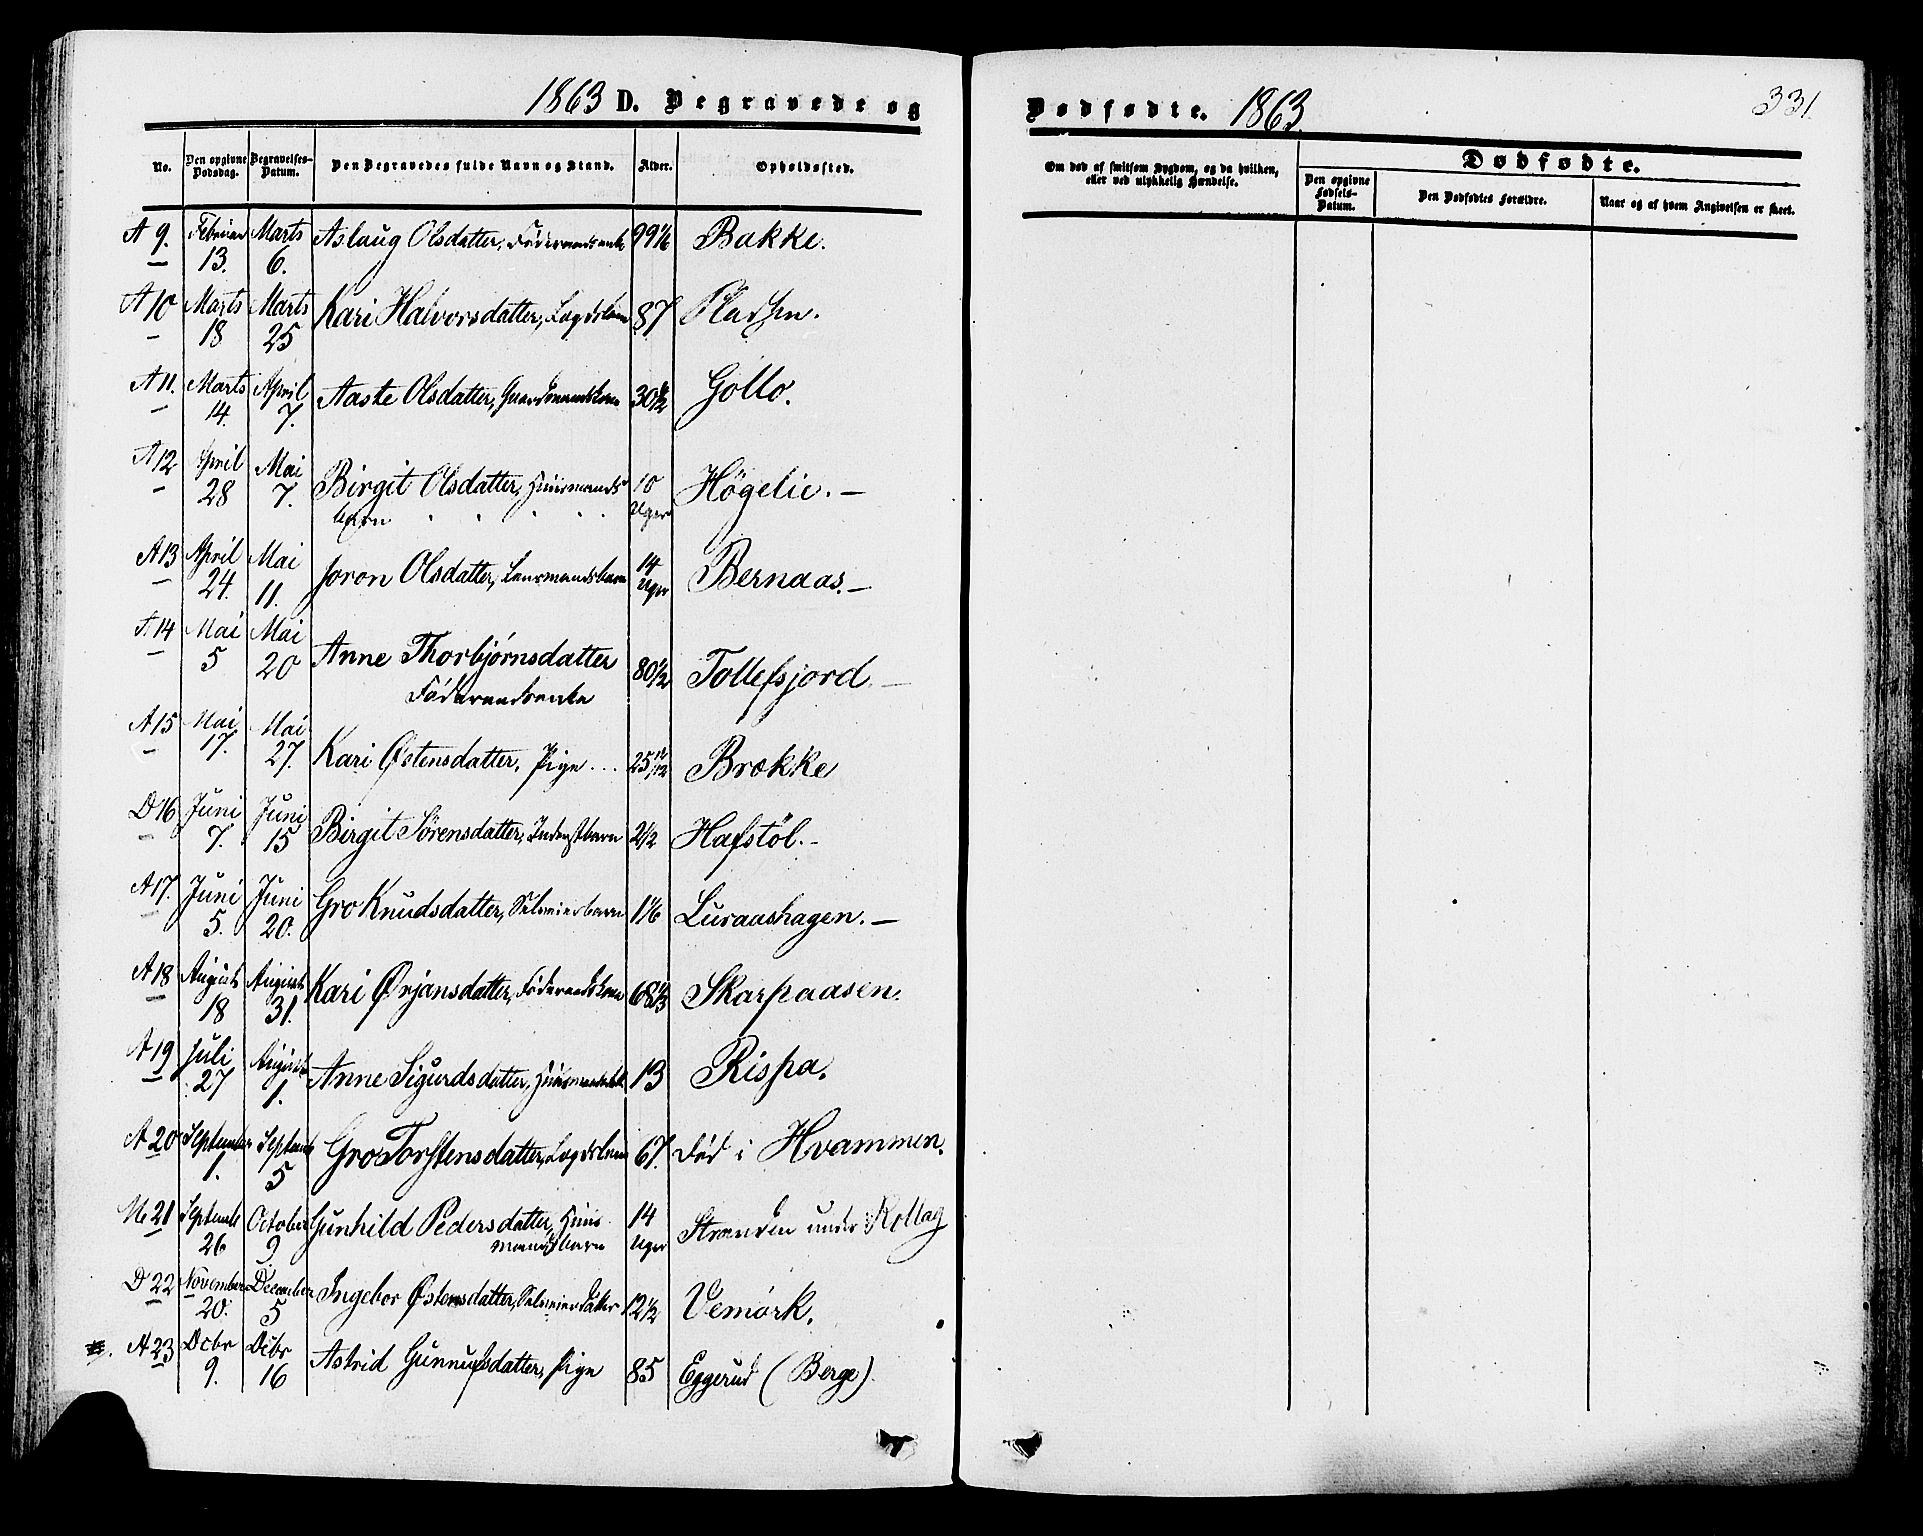 1863 D. Begravede og
No. Den opgivne Dødsdag. Begravelses-Datum. Den Begravedes fulde Navn og Stand. Alder. Opholdssted.
A 9. Februar 13. Marts 6. Aslaug Olsdatter, Föderaadsenke 99 1/6 Bakke.
A 10 Marts 18 Marts 25 Kari Halvorsdatter, Lægdslem 87 Pladsen.
A 11. Marts 14. April 7. Aaste Olsdatter, Gaardmandskone 30 1/2 Gollo.
A 12 April 28 Mai 7. Birgit Olsdatter, Huusmands
barn 10 Uger Högelie. —
A 13 April 24. Mai 11. Joron Olsdatter, Lensmandsbarn 14 Uger Bernaas. —
A 14 Mai 5 Mai 20 Anne Thorbjørnsdatter
Föderaadsenke 80 1/2 Tollefsjord. —
A 15 Mai 17. Mai 27. Kari Østensdatter, Pige 25 Brokke
D 16 Juni 7. Juni 15 Birgit Sørensdatter, Inderstbarn 2 1/2 Hafstöl. -
A 17. Juni 5. Juni 20. Gro Knudsdatter, Selveierbarn 1 1/6 Luraashagen. —
A 18 August 18 August 31. Kari Ørjansdatter, Föderaadskone 68 1/3 Skarpaasen.
A 19 Juli 27 August 1. Anne Sigurdsdatter, 13 Rispa.
A 20 September 1. Septemb 5 Gro Torstensdatter, Lægdslem 67. Död i Hvammen.
N 21 Septemb 26 October 9 Gunhild Pedersdatter, Huus
mandsbarn 14 Uger Stranden under Rollag
D 22 November 20. December 5 Ingebor Østensdatter, Selveierdatter 12 1/2 Vemork.
A 23 Dcbr 9. Dcbr 16 Astrid Gunnufsdatter, Pige 85 Eggerud (Berge).
Dødfødte. 1863. 331.
Om død af smitsom Sygdom, og da hvilken,
eller ved ulykkelig Hændelse.
Dødfødte.
Den opgivne Fødsels-Datum. Den Dødfødtes Forældre. Naar og af hvem Angivelsen er skeet.